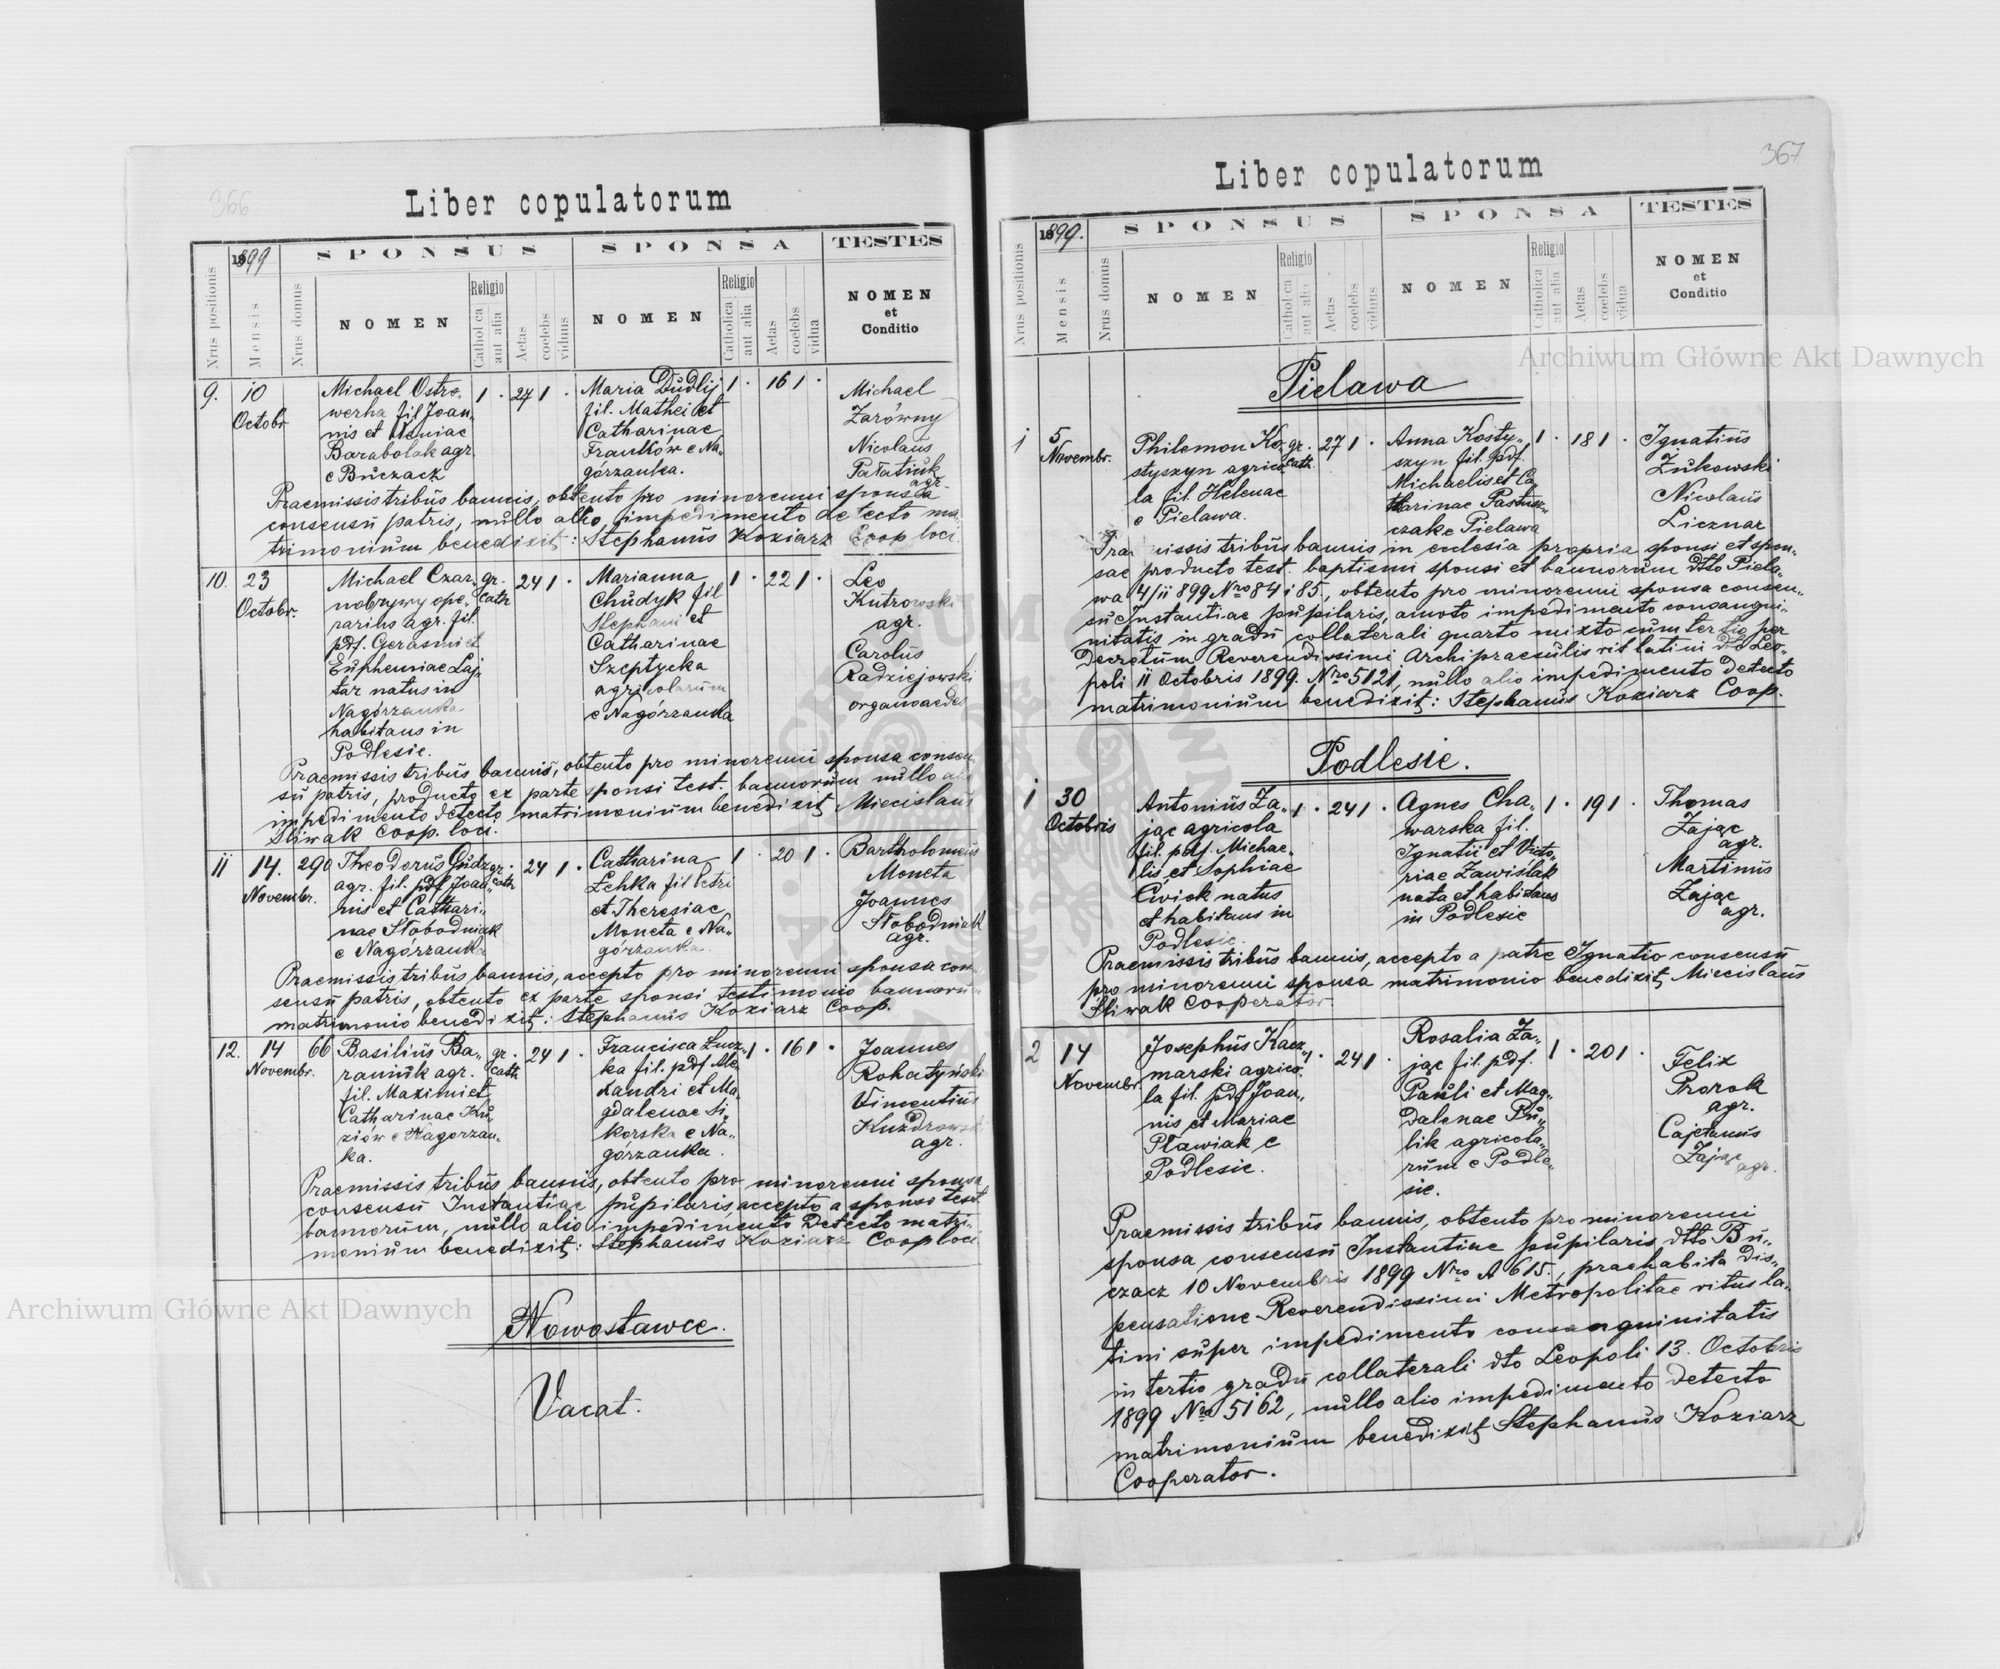 366
Liber copulatorum
1899
SPONSUS
SPONSA
TESTES
Nrus positionis
Mensis
Nrus domus
NOMEN
Religio
Catholica
aut alia
Aetas
coelebs
viduus
NOMEN
Religio
Catholica
aut alia
Aetas
coelebs
vidua
NOMEN
et
Conditio
9. 10 Octobr.
Michael Ostro-
werha fil Joan-
nis et Xeniae
Barabolak agr.
e Buczacz
1 . 27 1 .
Maria Dudlij
fil. Mathei et
Catharinae
Frankow e Na-
górzanka.
1 . 16 1 .
Michael
Zarówny
Nicolaus
Pałatiuk
agr.
Praemissis tribus bannis, obtento pro minorenni sponsa
consensu patris, nullo alio impedimento detecto ma-
trimonium benedixit: Stephanus Koziarz Coop loci.
10. 23 Octobr.
Michael Czar-
nobrywy ope-
rarius agr. fil.
pdf. Gerasmi et
Euphemiae Laj-
tar natus in
Nagórzanka
habitans in
Podlesie.
gr. cath 24 1 .
Marianna
Chudyk fil
Stephani et
Catharinae
Szeptycka
agricolarum
e Nagórzanka
1 . 22 1 .
Leo
Kutrowski
agr.
Carolus
Radziejowski
organoedes
Praemissis tribus bannis, obtento pro minorenni sponsa consen-
su patris, producto ex parte sponsi test. bannorum nullo alio
impedimento detecto matrimonium benedixit Miecislaus
Śliwak Coop. loci.
11 14. Novembr. 290
Theodorus Gudz
agr. fil. pdf Joan-
nis et Cathari-
nae Słobodniak
e Nagórzanka
gr. cath 24 1 .
Catharina
Lehka fil Petri
et Theresiae
Moneta e Na-
górzanka.
1 . 20 1 .
Bartholomeus
Moneta
Joannes
Słobodniak
agr.
Praemissis tribus bannis, accepto pro minorenni sponsa con-
sensu patris, obtento ex parte sponsi testimonio bannorum
matrimonio benedixit: Stephanus Koziarz Coop.
12. 14 Novembr. 66
Basilius Ba-
raniuk agr.
fil. Maximi et
Catharinae Ku-
ziów e Nagorzan-
ka.
gr. cath 24 1 .
Francisca Lucz-
ka fil. pdf Ale-
xandri et Ma-
gdalenae Si-
korska e Na-
górzanka.
1 . 16 1 .
Joannes
Rohatyński
Vincentius
Kuzdrowski
agr.
Praemissis tribus bannis, obtento pro minorenni sponsa
consensu Instantiae pupilaris, accepto a sponso test
bannorum, nullo alio impedimento detecto matri-
monium benedixit: Stephanus Koziarz Coop loci
Nowostawce.
Vacat.
367
Liber copulatorum
1899.
SPONSUS
SPONSA
TESTES
Nrus positionis
Mensis
Nrus domus
NOMEN
Religio
Catholica
aut alia
Aetas
coelebs
viduus
NOMEN
Religio
Catholica
aut alia
Aetas
coelebs
vidua
NOMEN
et
Conditio
Pielawa
1 5 Novembr.
Philemon Ko-
styszyn agrico-
la fil. Helenae
e Pielawa.
gr. cath. 27 1 .
Anna Kosty-
szyn fil. pdf.
Michaelis et Ca-
tharinae Pastusz-
czak e Pielawa
1 . 18 1 .
Ignatius
Zukowski
Nicolaus
Licznar
Praemissis tribus bannis in ecclesia propria sponsi et spon-
sae producto test. baptismi sponsi et bannorum dtto Piela-
wa 4/11 899 Nro 84 i 85, obtento pro minorenni sponsa consen-
su Instantiae pupilaris, amoto impedimento consangui-
nitatis in gradu collaterali quarto mixto cum tertio per
Decretum Reverendissimi Archipraesulis rit latini dto Leo-
poli 11 Octobris 1899. Nro 5121, nullo alio impedimento detecto
matrimonium benedixit: Stephanus Koziarz Coop.
Podlesie.
1 30 Octobris
Antonius Za-
jąc agricola
fil. pdf. Michae-
lis et Sophiae
Ćwiok natus
et habitans in
Podlesie.
1 . 24 1 .
Agnes Cha-
warska fil.
Ignatii et Victo-
riae Zawislak
nata et habitans
in Podlesie
1 . 19 1 .
Thomas
Zając
agr.
Martinus
Zając
agr.
Praemissis tribus bannis, accepto a patre Ignatio consensu
pro minorenni sponsa matrimonio benedixit Miecislaus
Śliwak cooperator
2 14 Novembr.
Josephus Kacz-
marski agrico-
la fil. pdf Joan-
nis et Mariae
Pławiak e
Podlesie.
1 . 24 1 .
Rosalia Za-
jąc fil. pdf.
Pauli et Mag-
dalenae Pu-
lik agricola-
rum e Podle-
sie.
1 . 20 1 .
Felix
Prorok
agr.
Cajetanus
Zając
agr.
Praemissis tribus bannis, obtento pro minorenni
sponsa consensu Instantiae pupilaris dtto Bu-
czacz 10 Novembris 1899 Nro A 615., praehabita Dis-
pensatione Reverendissimi Metropolitae ritus la-
tini super impedimento consanguinitatis
in tertio gradu collaterali dto Leopoli 13. Octobris
1899 Nro 5162, nullo alio impedimento detecto
matrimonium benedixit Stephanus Koziarz
Cooperator.
Archiwum Główne Akt Dawnych
Archiwum Główne Akt Dawnych